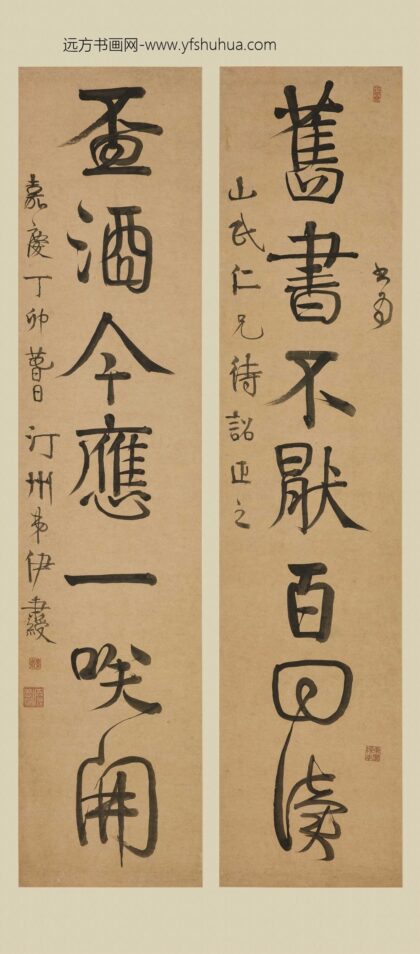 远方书画网-www.yfshuhua.com
书为
舊書不厭百回讀
山民仁兄待詔正之
盃酒今應一笑開
嘉慶丁卯
汀州弟伊秉綬